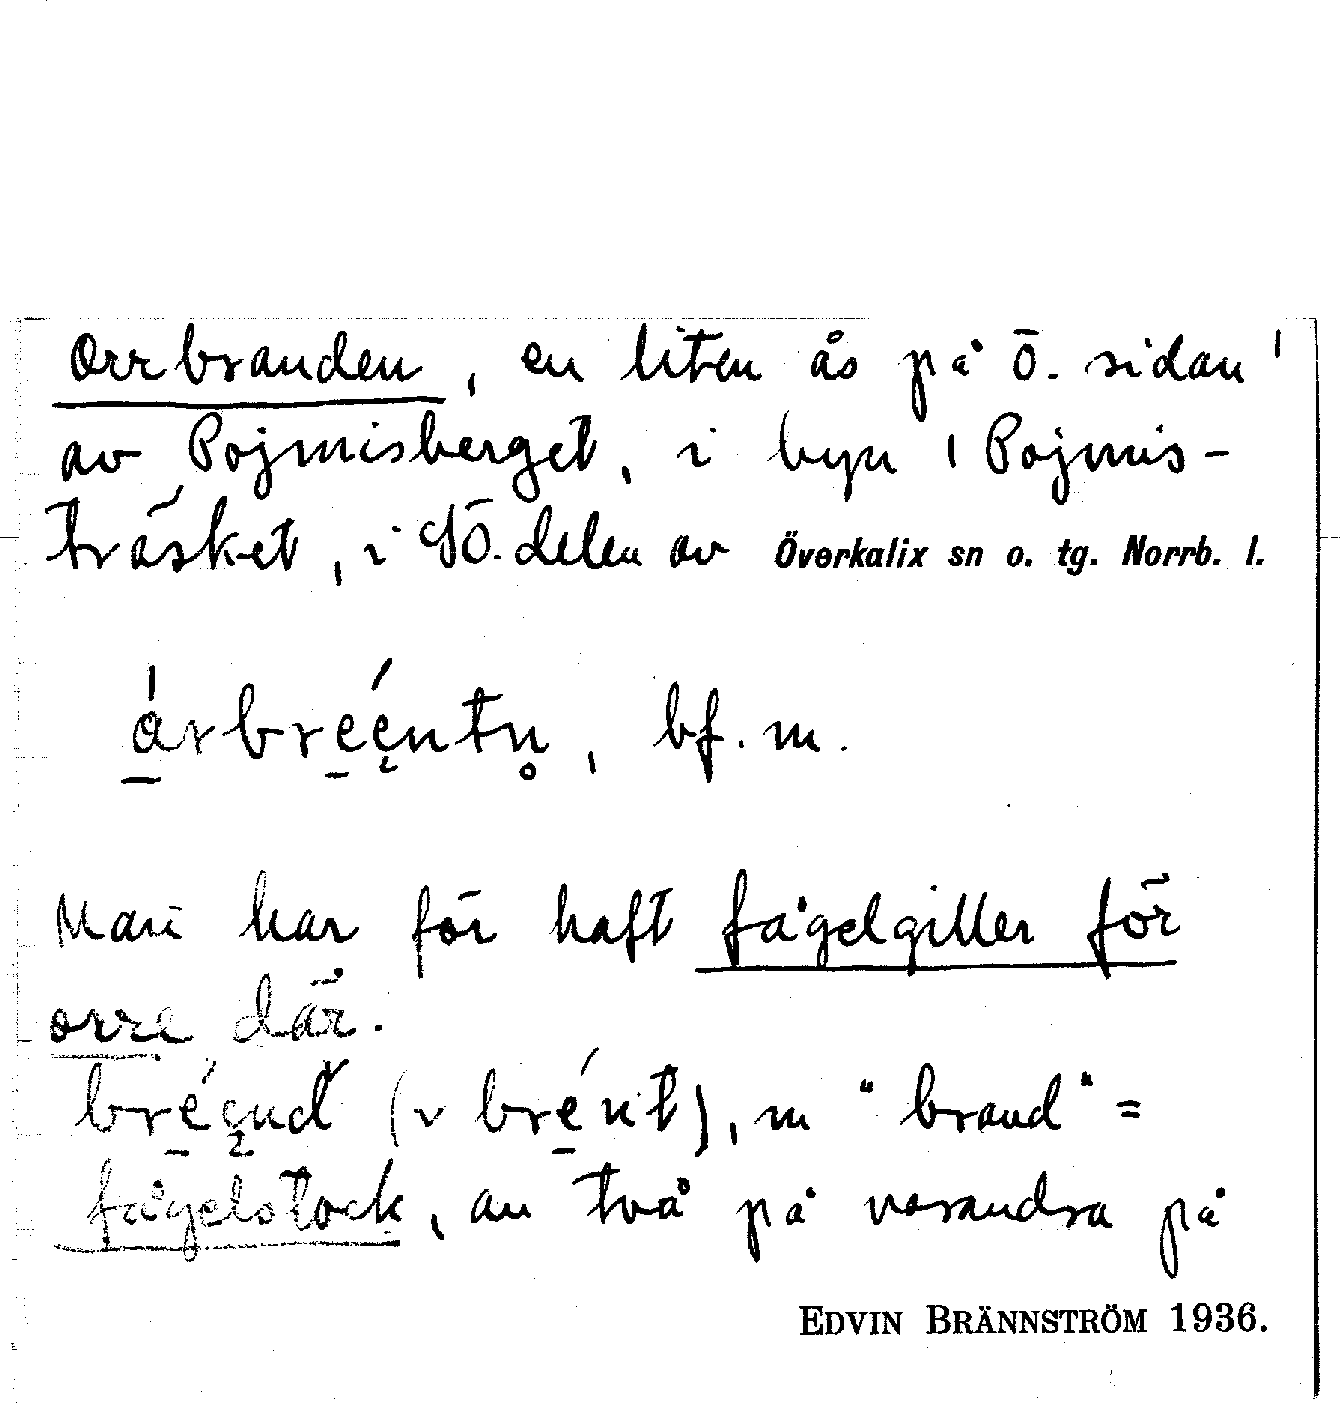 Orrbranden, en liten ås på ö. sidan
av Pojmisberget, i byn Pojmis-
träsket, i SÖ. delen av Överkalix sn o. tg. Norrb. l.
bf. m.
Man har för haft fågelgiller för
orre där.
m "brand" =
fågelstock, av två på varandra på
EDVIN BRÄNNSTRÖM 1936.